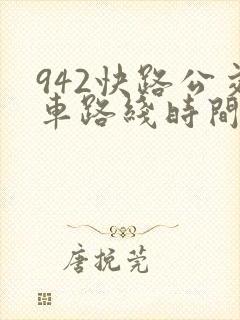 942快路公交
車路綫時間
唐挽莞